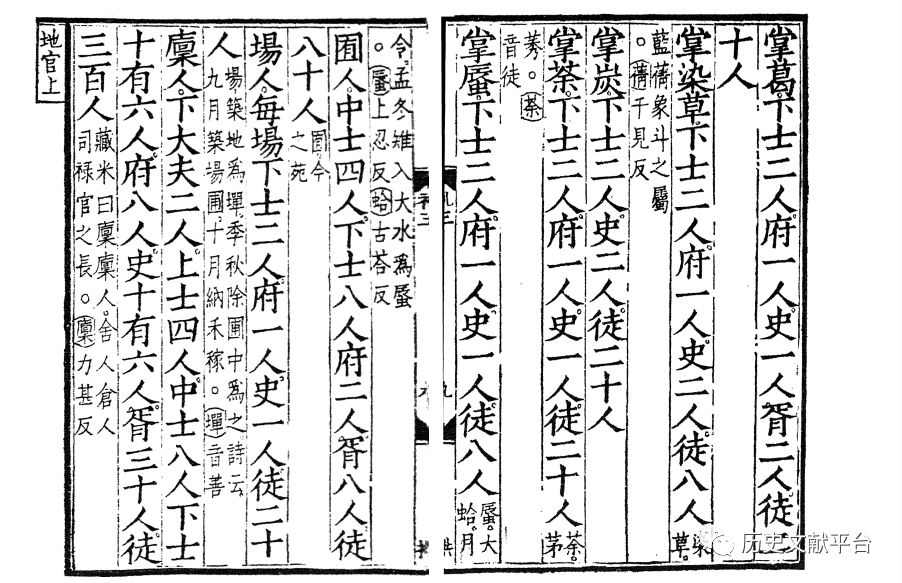 掌葛下士二人府一人史一人胥二人徒二
十人
掌染草下士二人府一人史二人徒八人染草
藍蒨象斗之屬
。蒨千見反
掌炭下士二人史二人徒二十人
掌荼下士二人府一人史一人徒二十人荼茅
莠。荼
音徒
掌蜃下士二人府一人史一人徒八人蜃大蛤月
令孟冬雉入大水爲蜃
。蜃上忍反蛤古荅反
囿人中士四人下士八人府二人胥八人徒
八十人囿今之苑
場人每場下士二人府一人史一人徒二十
人場築地爲墠季秋除圃中爲之詩云九月築場圃十月納禾稼。墠音善
廩人下大夫二人上士四人中士八人下士
十有六人府八人史十有六人胥三十人徒
三百人藏米曰廩廩人舍人倉人司祿官之長。廩力甚反
地官上
历史文献平台